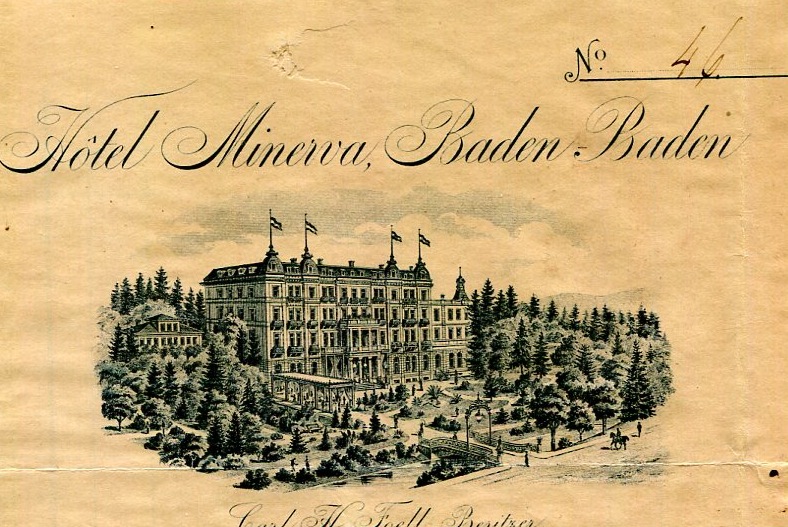 No 46
Hôtel Minerva, Baden-Baden
Carl H. Foell, Besitzer